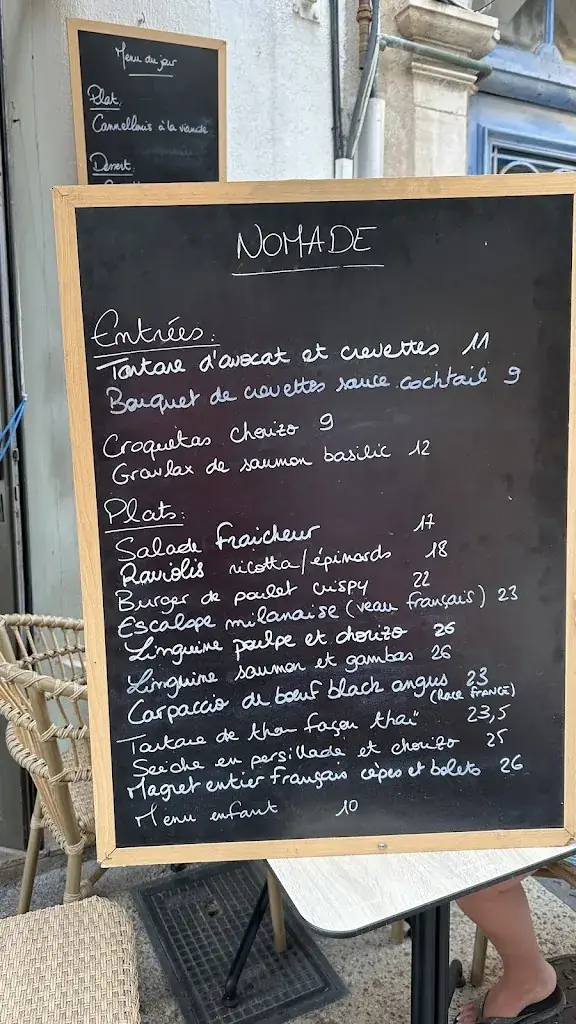 Menu du jour
Plat:
Cannellonis à la viande
Dessert
NOMADE
Entrées:
Tartare d'avocat et crevettes 11
Bouquet de crevettes sauce cocktail 9
Croquetas chorizo 9
Gravlax de saumon basilic 12
Plats:
Salade fraicheur 17
Raviolis ricotta/épinards 18
Burger de poulet crispy 22
Escalope milanaise (veau français) 23
Linguine poulpe et chorizo 26
Linguine saumon et gambas 26
Carpaccio de bœuf black angus 23
(Race FRANCE)
Tartare de thon façon thaï 23,5
Seiche en persillade et chorizo 25
Magret entier français cèpes et bolets 26
Menu enfant 10